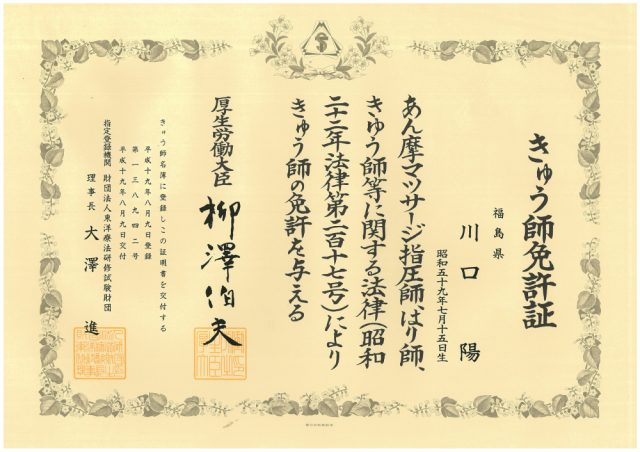 きゅう師免許証
福島県
川口 陽
昭和五十九年七月十五日生
あん摩マツサージ指圧師、はり師、
きゆう師等に関する法律(昭和
二十二年法律第二百十七号)により
きゅう師の免許を与える
厚生労働大臣 柳澤伯夫
きゅう師名簿に登録しこの証明書を交付する
平成十九年八月九日登録
第一三八九四二号
平成十九年八月九日交付
指定登録機関 財団法人東洋療法研修試験財団
理事長 大澤 進